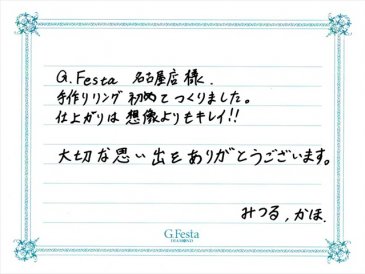 G.Festa 名古屋店 様.
手作りリング 初めてつくりました。
仕上がりは 想像よりもキレイ!!
大切な思い出をありがとうございます。
みつる, かほ.
G.Festa
DIAMOND